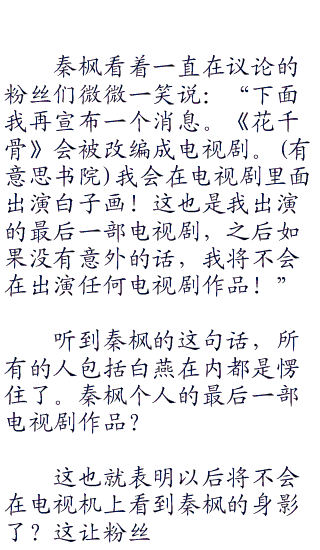 秦枫看着一直在议论的
粉丝们微微一笑说：“下面
我再宣布一个消息。《花千
骨》会被改编成电视剧。(有
意思书院)我会在电视剧里面
出演白子画！这也是我出演
的最后一部电视剧，之后如
果没有意外的话，我将不会
在出演任何电视剧作品！”
听到秦枫的这句话，所
有的人包括白燕在内都是愣
住了。秦枫个人的最后一部
电视剧作品？
这也就表明以后将不会
在电视机上看到秦枫的身影
了？这让粉丝